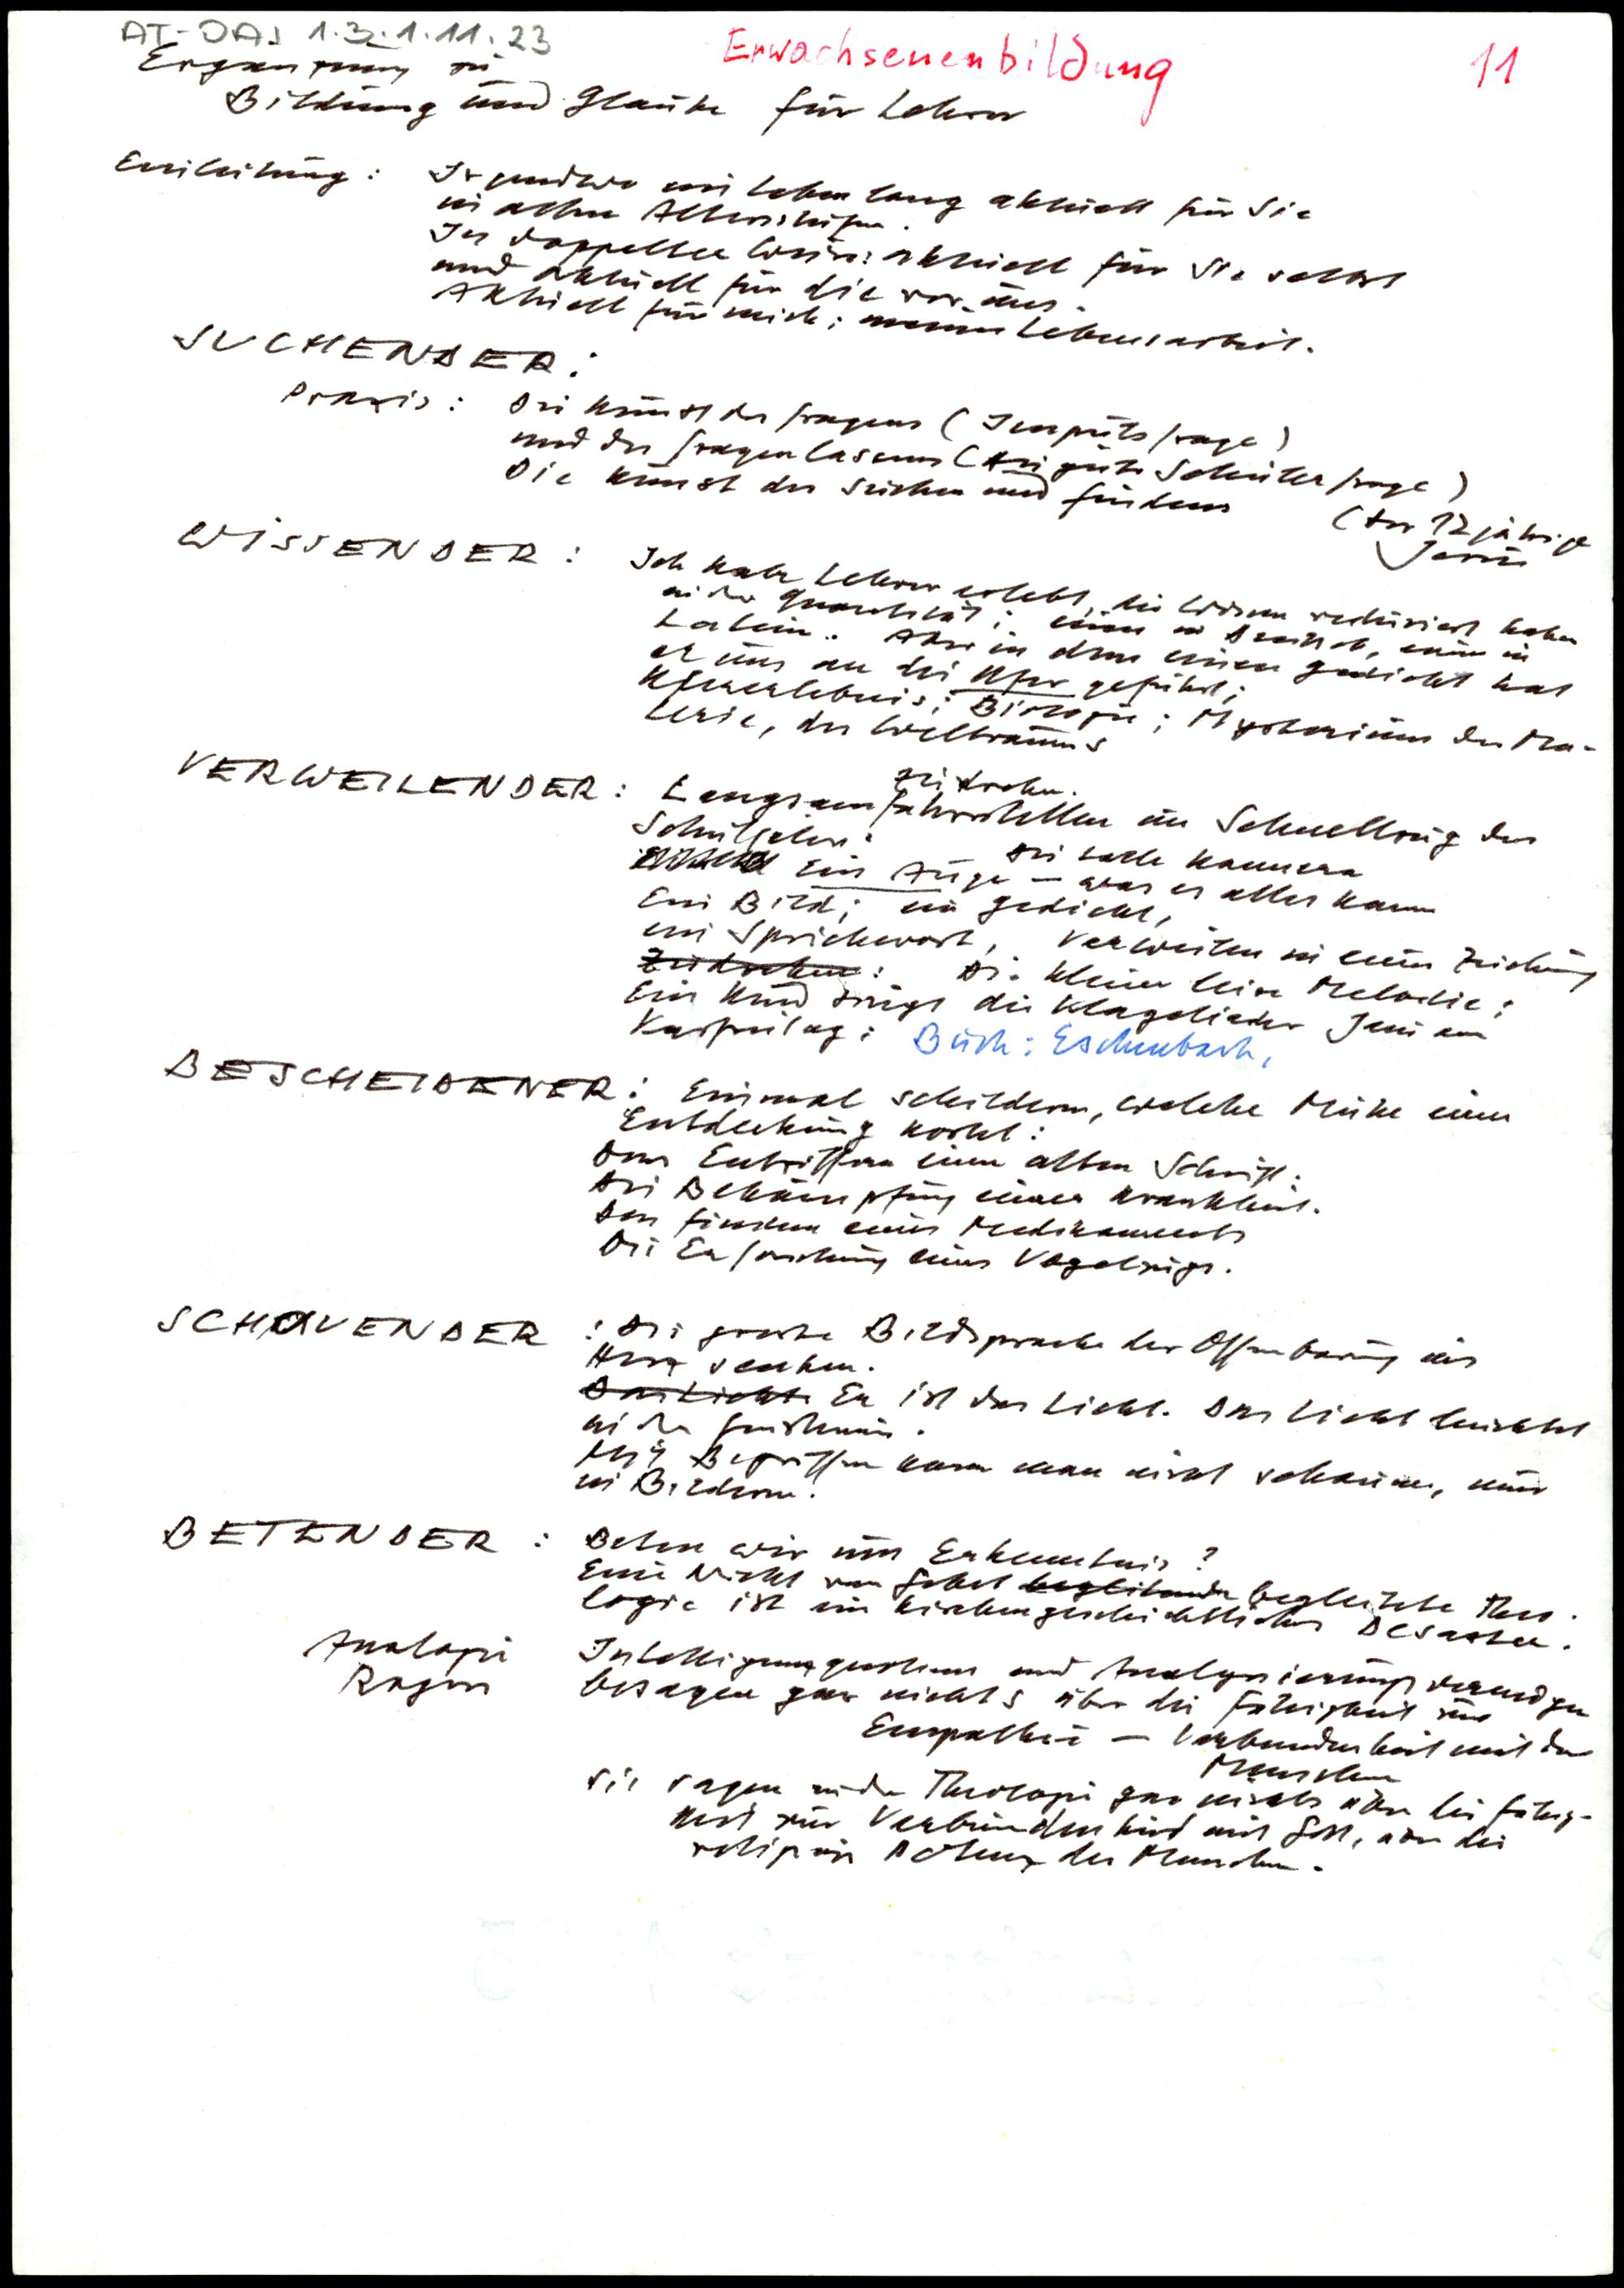 AT-DAS 1.3.1.11.23
Erwachsenenbildung 11
Ergänzung zu
Bildung und Glaube für Lehrer
Einleitung: Irgendwo ein Leben lang aktuell für Sie
in allen Altersstufen.
In doppelter Weise: aktuell für Sie selbst
und aktuell für die vor uns.
Aktuell für mich: meine Lebensarbeit.
SUCHENDER:
Praxis: Die Kunst des Fragens (Impulsfrage)
und des Fragenlassens (die gute Schülerfrage)
Die Kunst des Suchens und Findens (der 12jährige
Jesus
WISSENDER: Ich habe Lehrer erlebt, die Wissen reduziert haben
in der Quantität: einen in Deutsch, einen in
Latein. Aber in dem einen Gedicht hat
er uns an die Ufer geführt;
Ufererlebnis: Biologie; Mysterium der Ma-
terie, des Weltraums
VERWEILENDER: Langsamfahrstellen im Schnellzug des
Schuljahrs:
Ein Auge – was es alles kann
Ein Bild; ein Gedicht,
ein Sprichwort, Verweilen in einer Zeichnung
Die kleine leise Melodie:
Ein Kind singt die Klagelieder Jesu am
Karfreitag: Buch: Eschenbach,
BESCHEIDENER: Einmal schildern, welche Mühe eine
Entdeckung kostet:
Das Entziffern einer alten Schrift:
Die Bekämpfung einer Krankheit.
Das Finden eines Medikaments
Die Erforschung eines Vogelzugs.
SCHAUENDER: Die große Bildsprache der Offenbarung ins
Herz senken.
Das Licht: Er ist das Licht. Das Licht leuchtet
in der Finsternis.
Mit Begriffen kann man nicht schauen, nur
in Bildern.
BETENDER: Beten wir um Erkenntnis?
Eine nicht von Gebet begleitende begleitete Theo-
logie ist ein kirchengeschichtliches Desaster.
Analogie Intelligenzquotient und Analysierungsvermögen
besagen gar nichts über die Fähigkeit zur
Empathie – Verbundenheit mit den
Menschen
sie sagen in der Theologie gar nichts über die Fähig-
keit zur Verbundenheit mit Gott, über die
religiöse Potenz des Menschen.